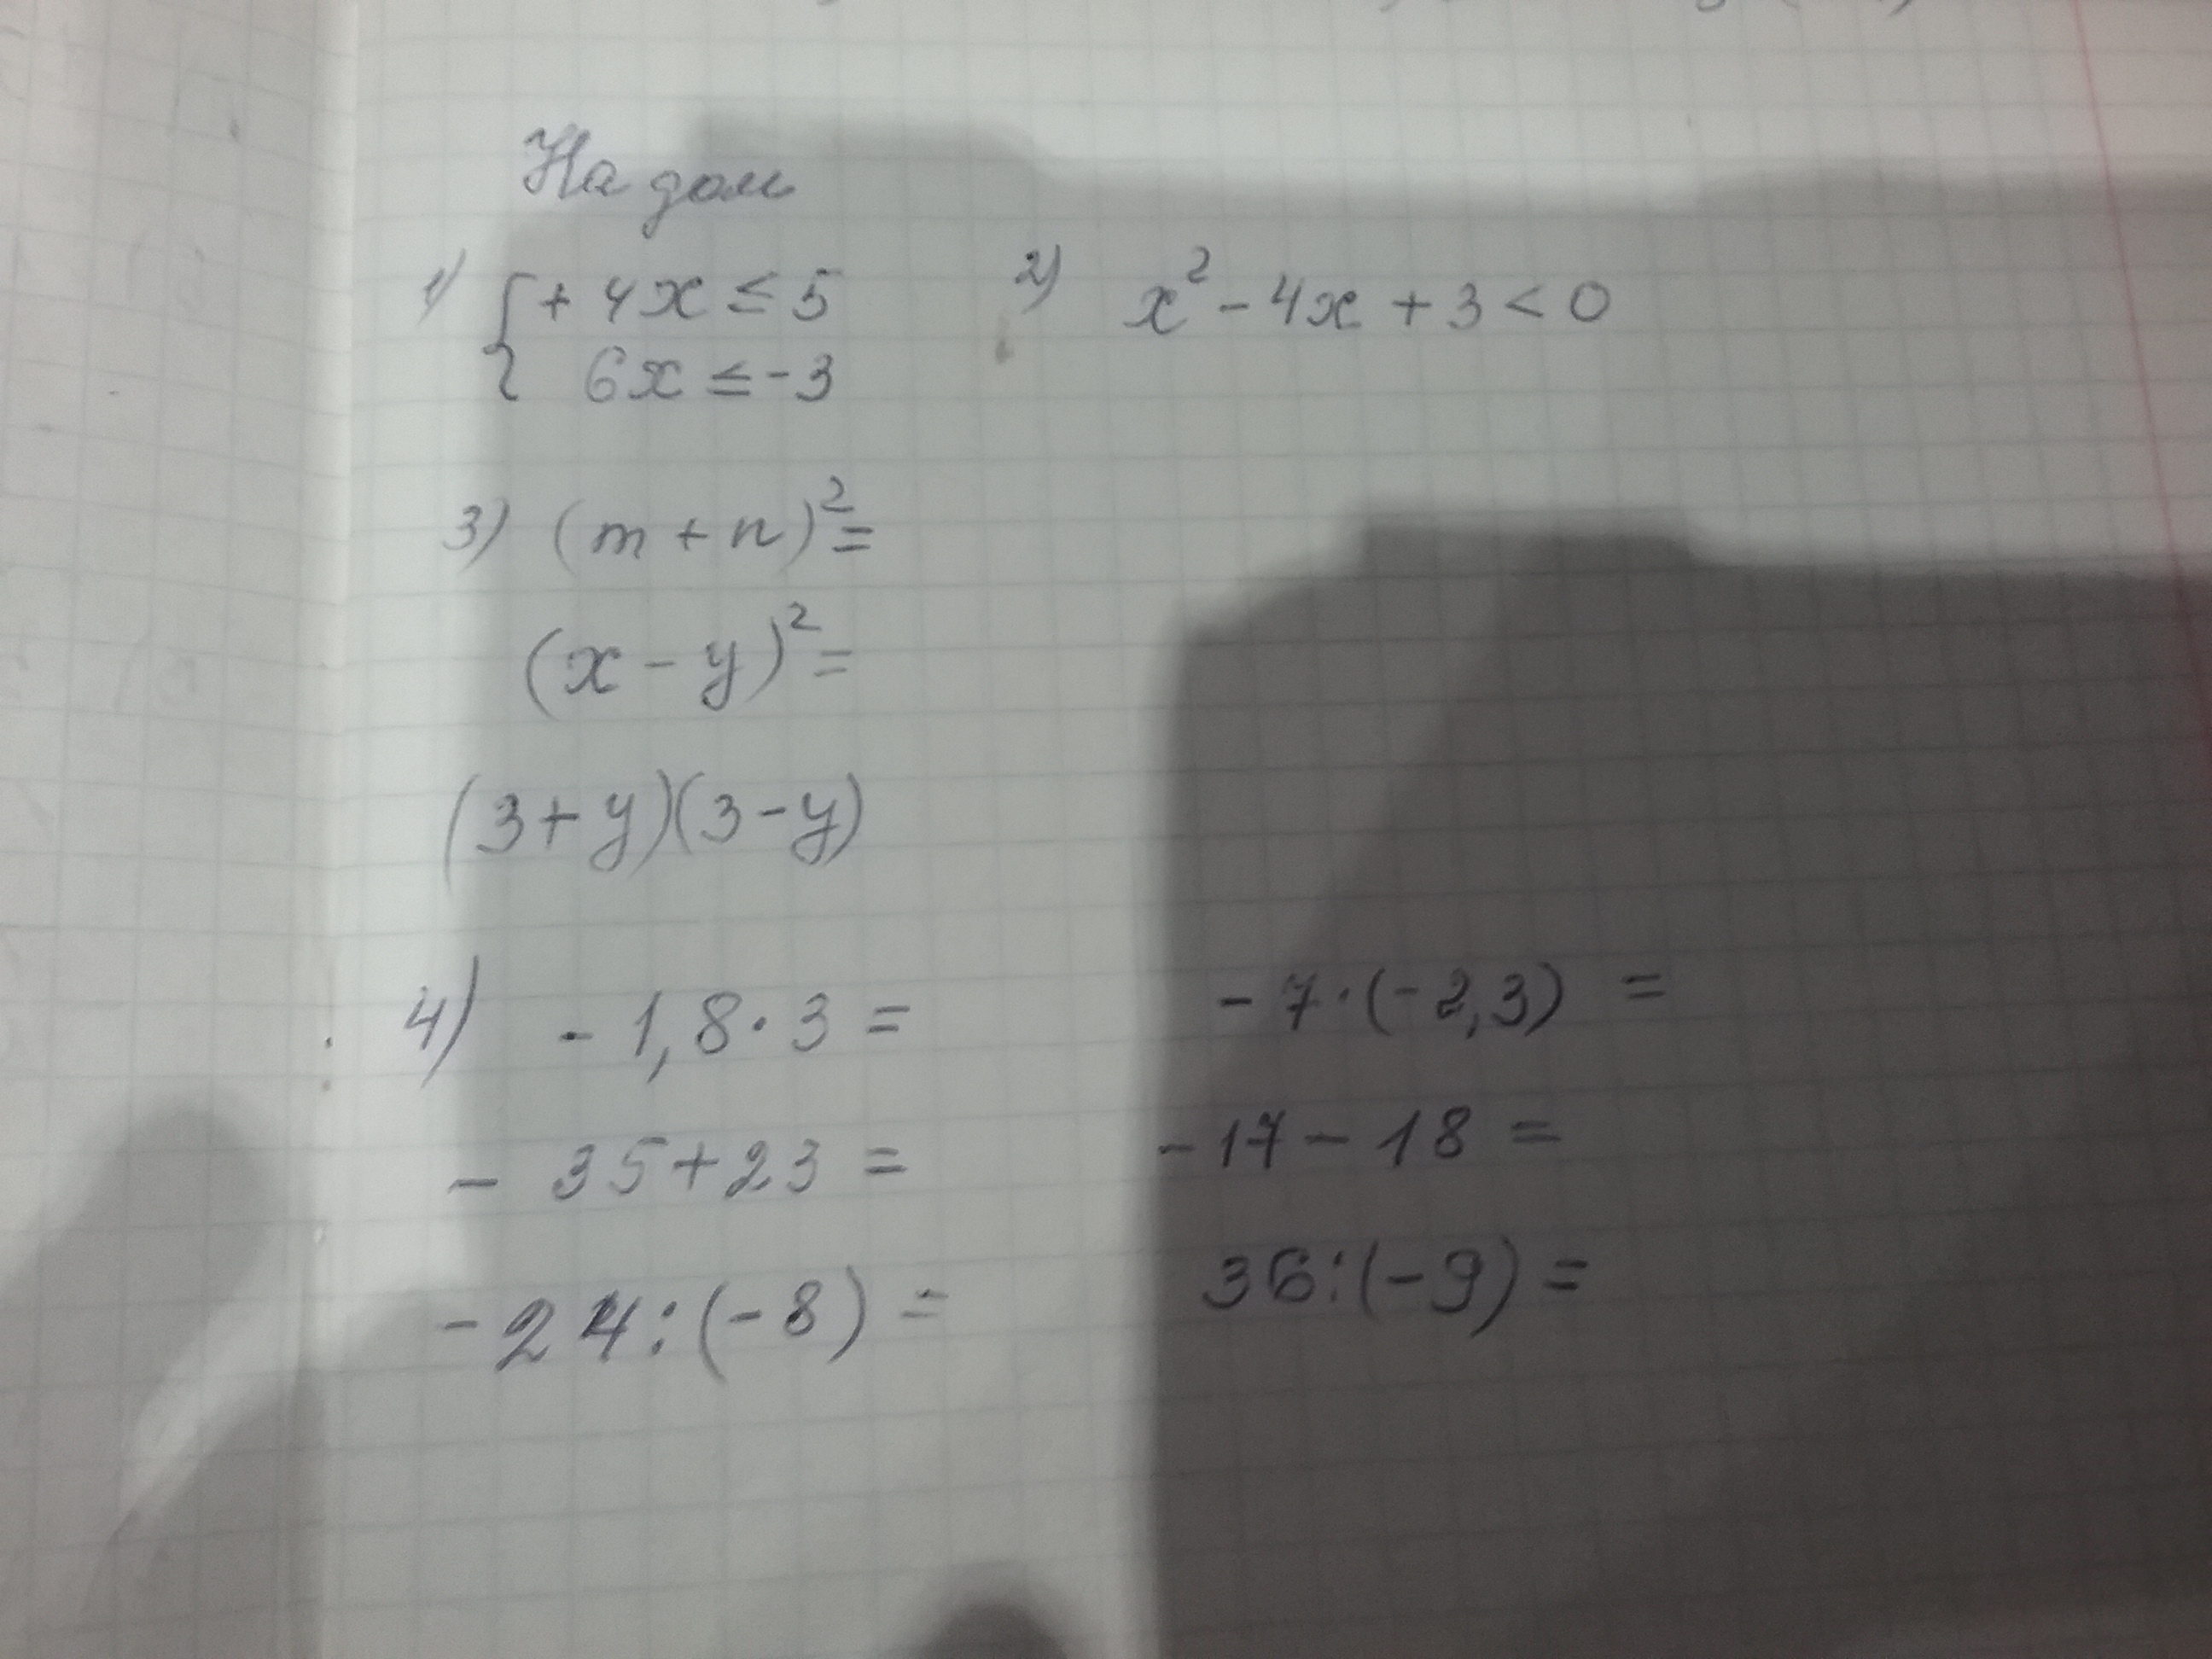 На дом
1) { + 4x ≤ 5
6x ≤ -3
2) x² - 4x + 3 < 0
3) (m + n)² =
(x - y)² =
(3 + y)(3 - y)
4) - 1,8 · 3 =
- 7 · (-2,3) =
- 35 + 23 =
- 17 - 18 =
- 24 : (-8) =
36 : (-9) =